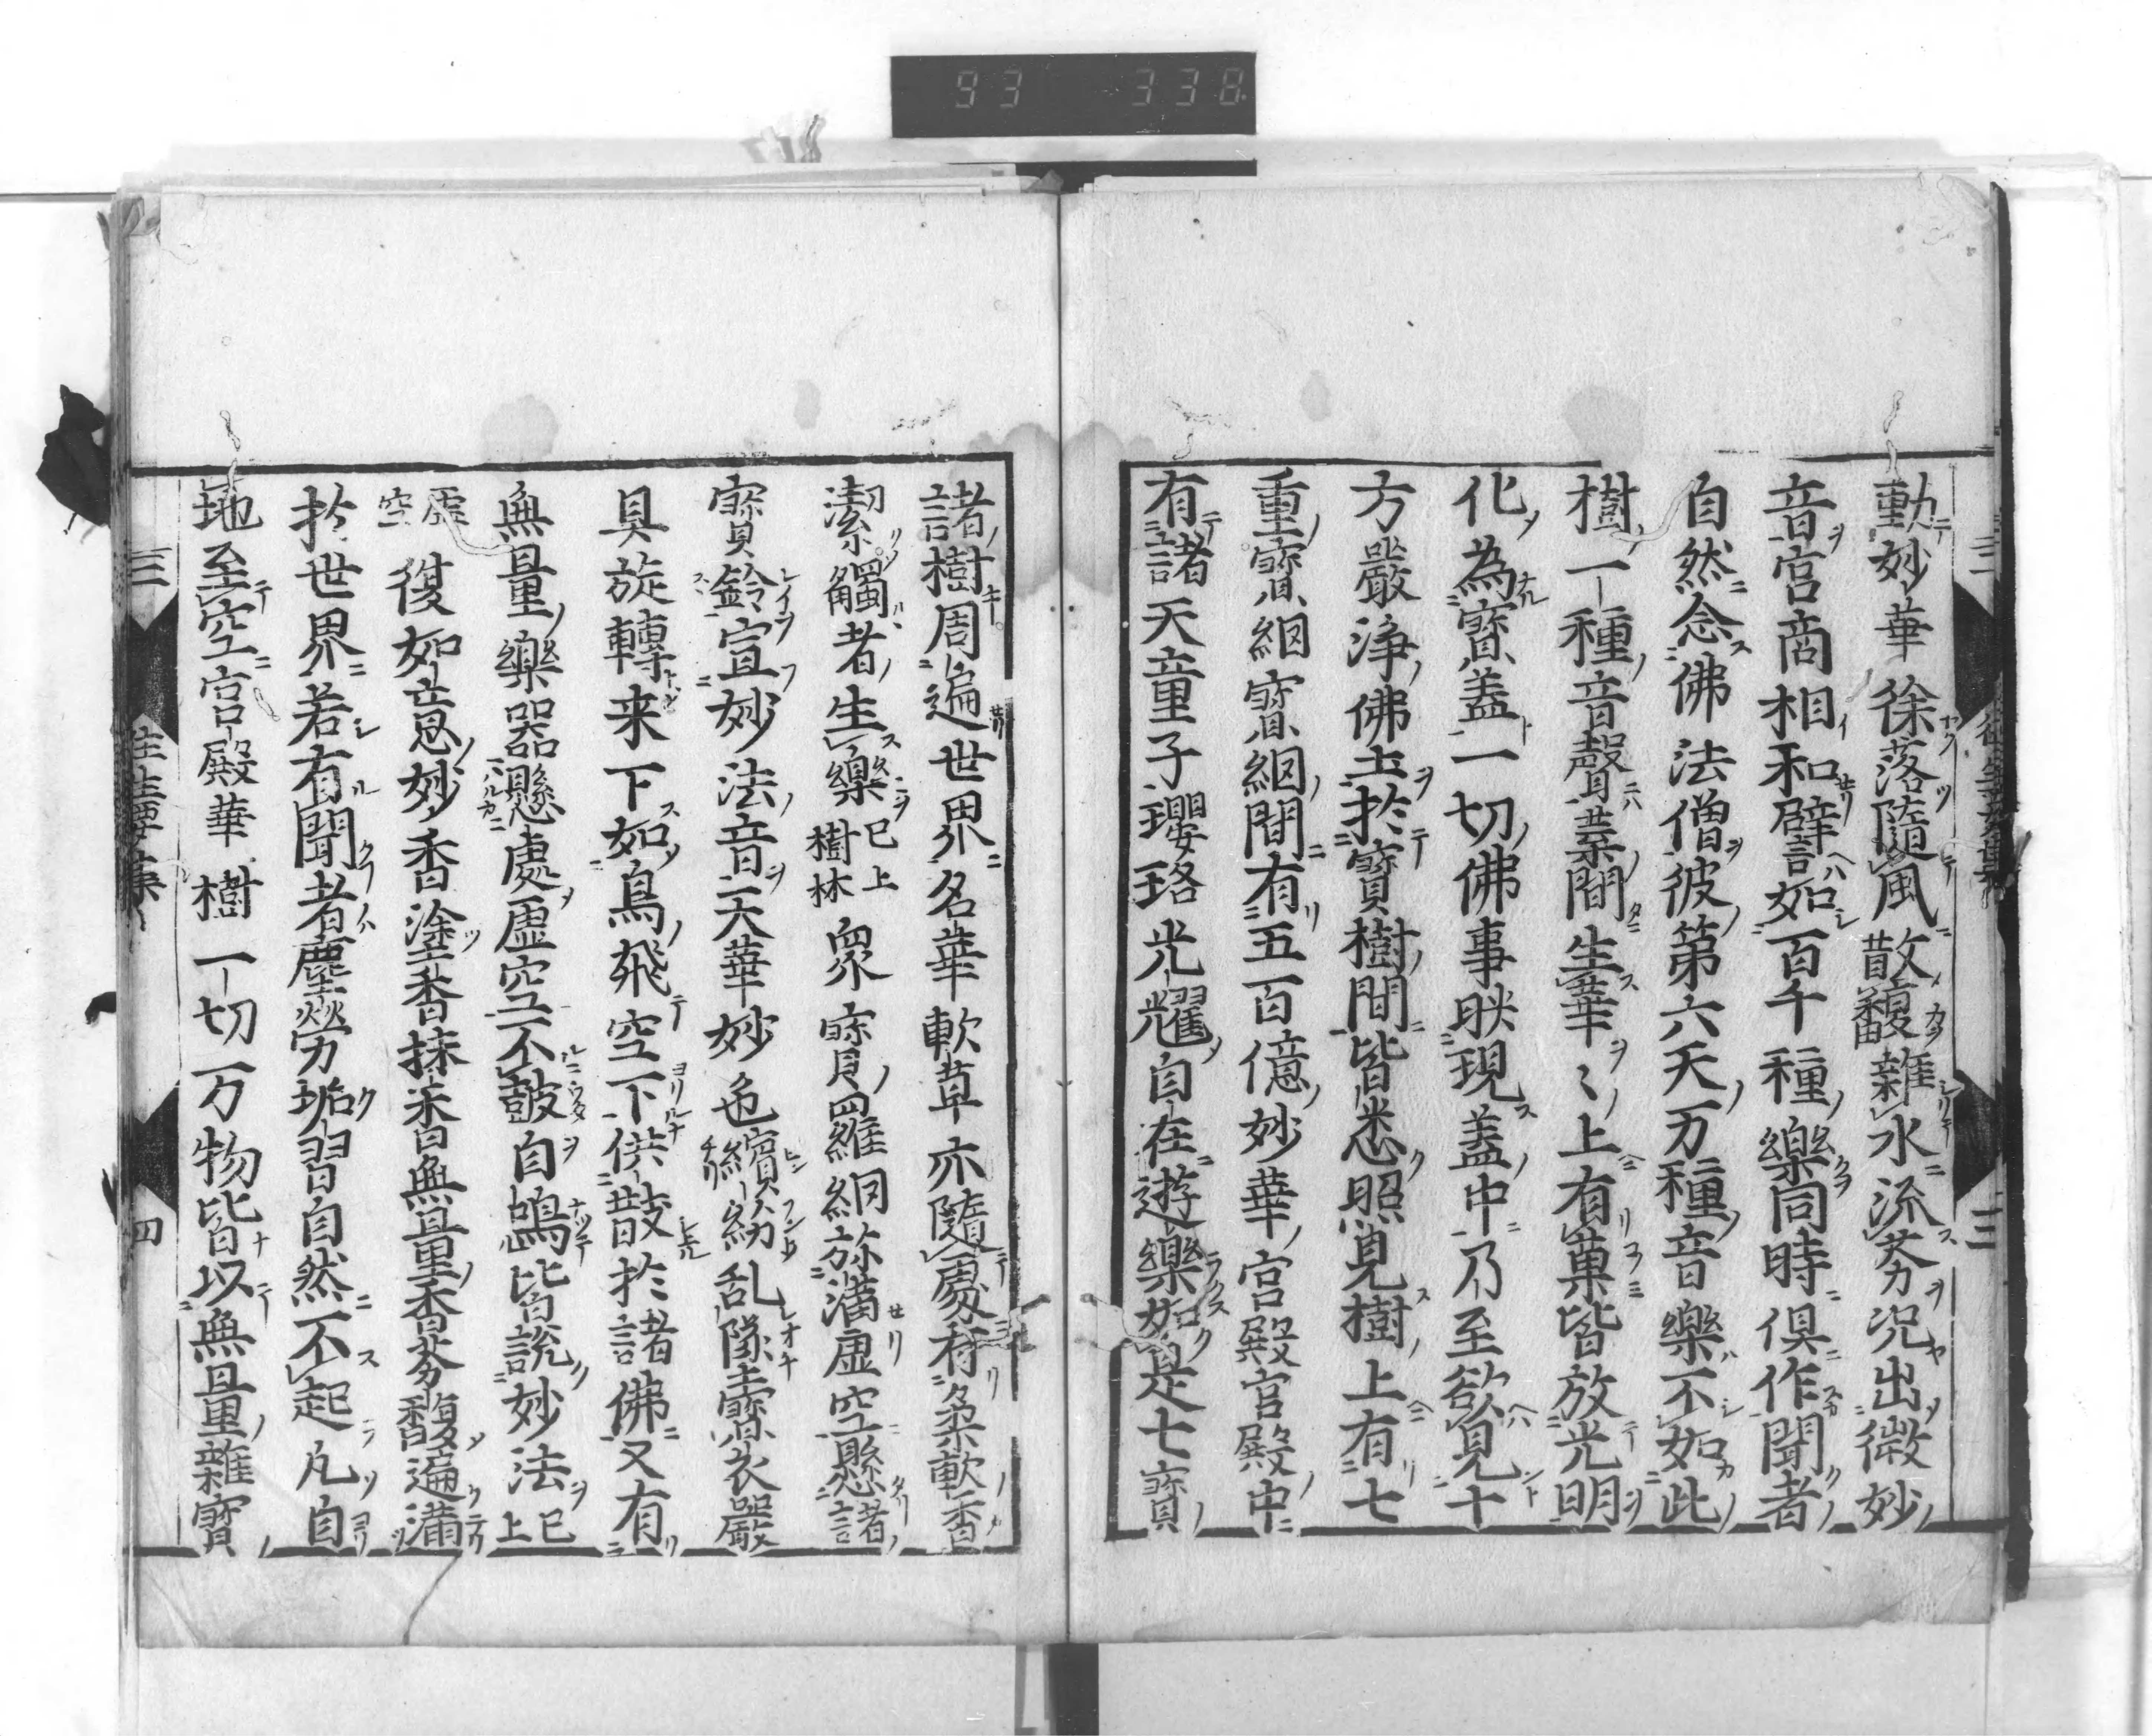 93 338
動妙華徐落隨風散馥雜水流芬況出微妙
音宮商相和譬如百千種樂同時俱作聞者
自然念佛法僧彼第六天万種音樂不如此
樹一種音聲葉間生華〻上有菓皆放光明
化為寳盖一切佛事映現盖中乃至欲見十
方嚴淨佛土於寳樹間皆悉照見樹上有七
重寳網寳網間有五百億妙華宮殿宮殿中
有諸天童子瓔珞光耀自在遊樂如是七寳
諸樹周遍世界名華軟草亦隨處有柔軟香
潔觸者生樂已上樹林衆寳羅網弥滿虚空懸諸
寳鈴宣妙法音天華妙色繽紛乱墜寳衣嚴
具旋轉来下如鳥飛空下供散於諸佛又有
無量樂器懸處虚空不鼓自鳴皆說妙法已上
虚空復如意妙香塗香抹香無量香芬馥遍滿
於世界若有聞者塵勞垢習自然不起凡自
地至空宮殿華樹一切万物皆以無量雜寳
三 往生要集 四